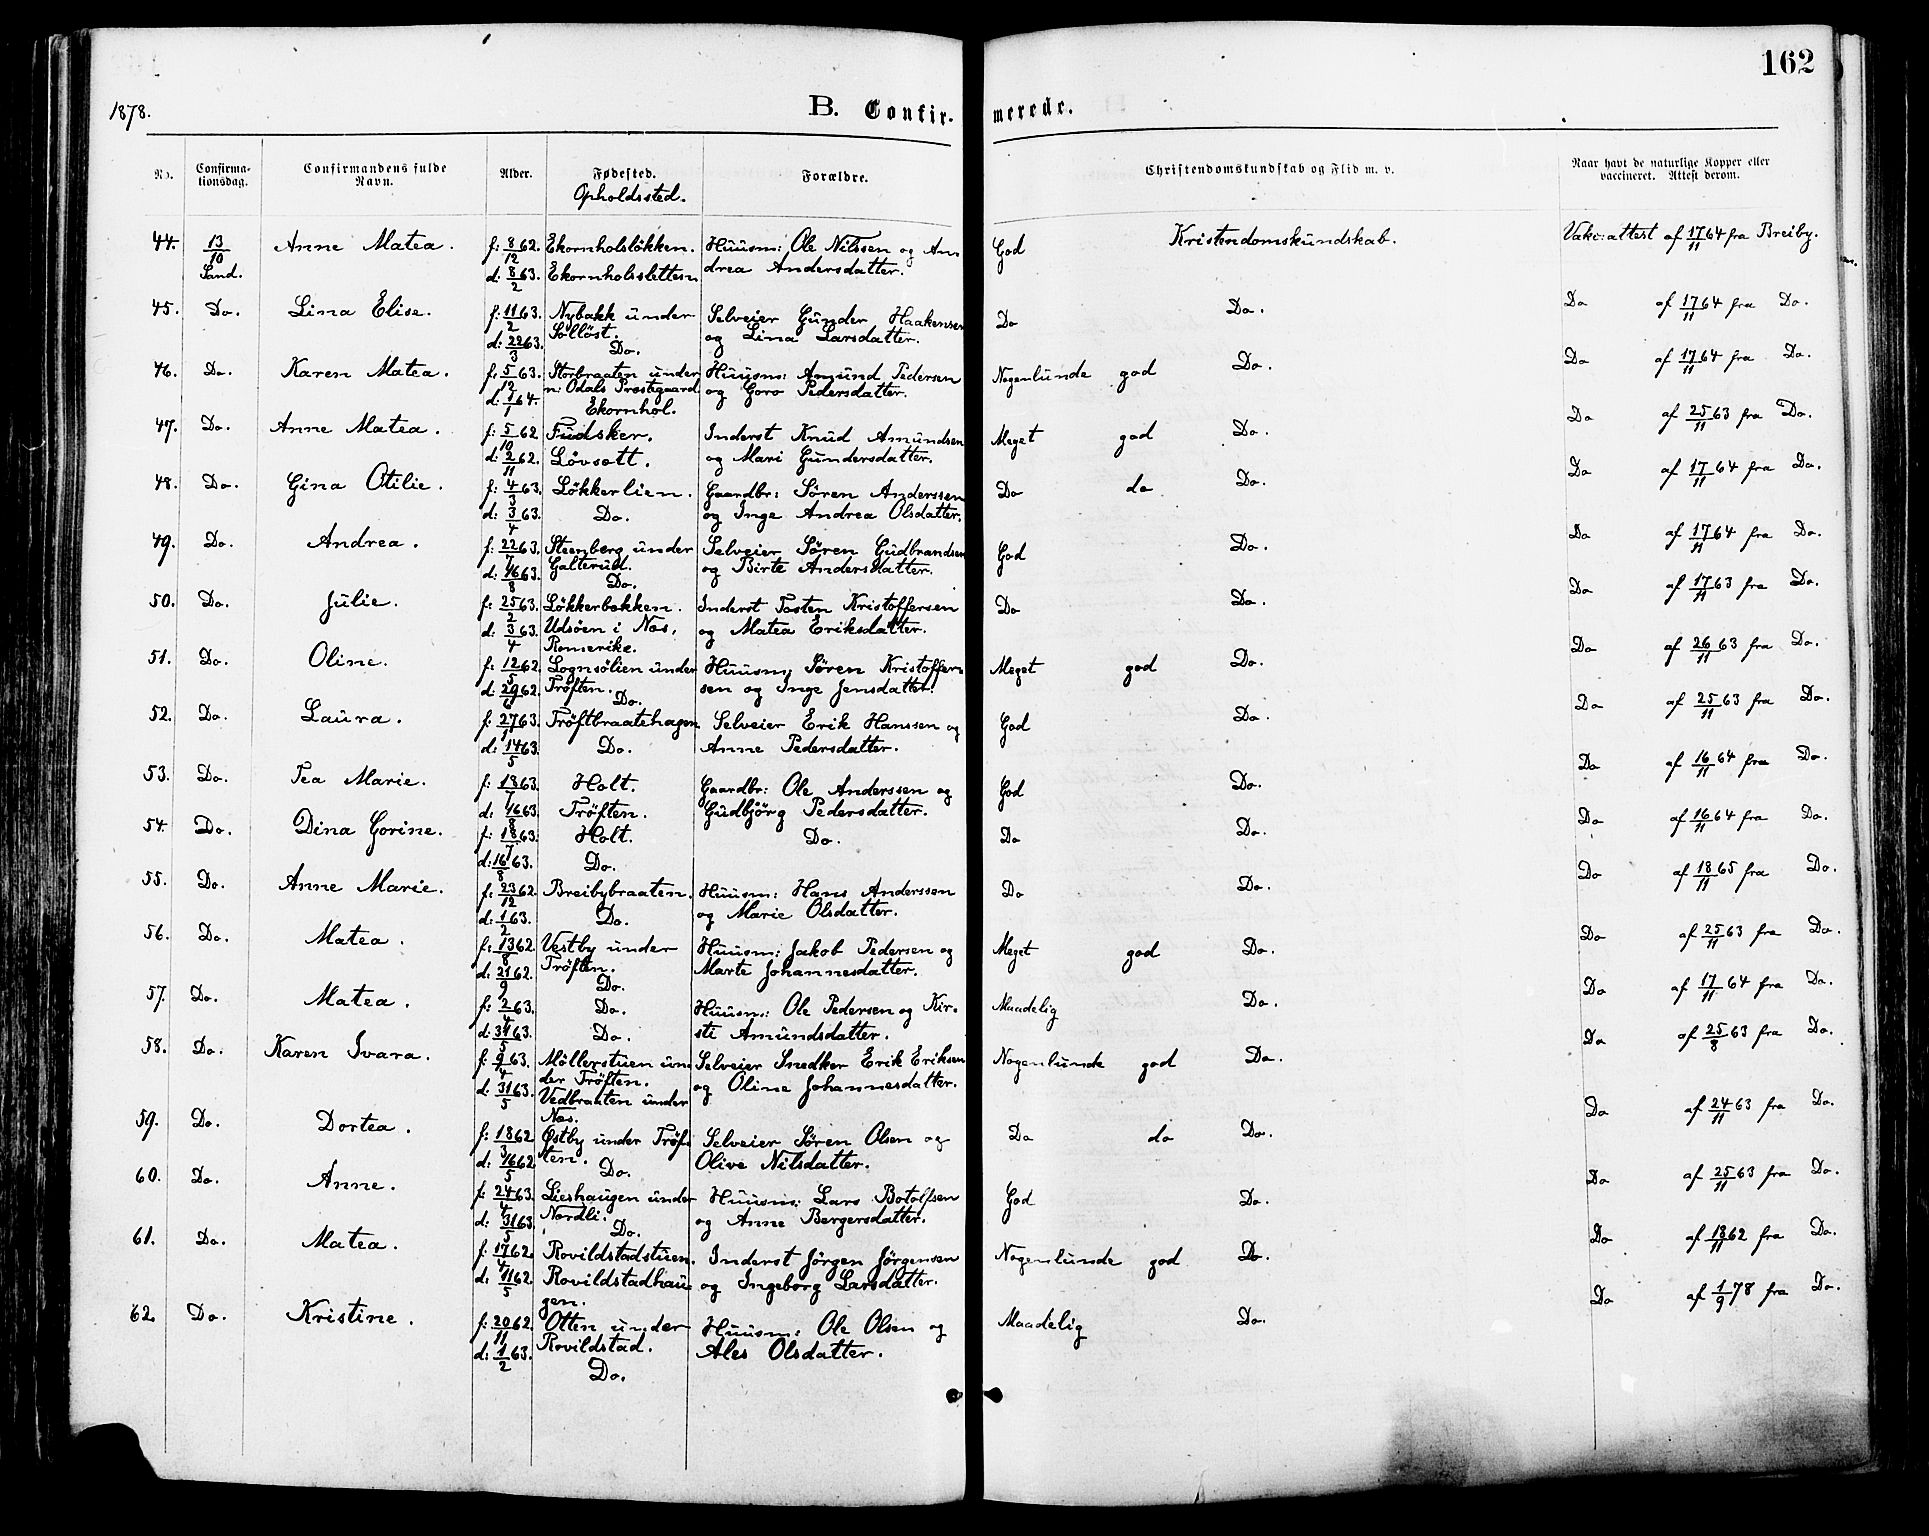 162
1878.
B. Confirmerede.
No. Confirmationsdag. Confirmandens fulde Navn. Alder. Fødested. Opholdssted. Forældre. Christendomskundskab og Flid m. v. Naar havt de naturlige Kopper eller vaccineret. Attest derom.
44. 13/10 Sand. Anne Matea. f: 8/12 62. Ekornholsløkken. Huusm: Ole Nilssen og An- God Kristendomskundskab. Vakc: attest af 17/11 64 fra Breiby.
d: 8/2 63. Ekornholssletten drea Andersdatter.
45. Do. Lina Elise. f: 11/2 63. Nybakk under Selveier Gunder Haakensen Do Do. Do af 17/11 64 fra Do.
d: 22/3 63. Solløst. Do. og Lina Larsdatter.
46. Do. Karen Matea. f: 5/12 63. Storbraaten under Huusm: Amund Pedersen Nogenlunde god Do. Do af 17/11 64 fra Do.
d: 1/1 64. n: Odals Prestegaard og Goro Pedersdatter.
Ekornhol.
47. Do. Anne Matea. f: 5/10 62 Fudsker. Inderst Knud Amundsen Meget god Do. Do af 25/11 63 fra Do.
d: 2/11 62. Løvsett. og Mari Gundersdatter.
48. Do. Gina Otilie. f: 4/3 63. Løkkerlien. Gaardbr: Søren Anderssen Do do Do. Do af 17/11 64 fra Do.
d: 3/4 63. Do. og Inge Andrea Olsdatter.
49. Do. Andrea. f: 22/7 63. Steenberg under Selveier Søren Gudbrandsen God Do. Do af 17/11 64 fra Do.
d: 16/8 63. Galterud. Do. og Birte Andersdatter.
50. Do. Julie. f: 25/2 63. Løkkerbakken. Inderst Tosten Kristoffersen Do Do. Do af 17/11 63 fra Do.
d: 3/4 63. Udsøen i Nes, Romerike. og Matea Eriksdatter.
51. Do. Oline. f: 12/5 62. Lognsølien under Huusm; Søren Kristoffer- Meget god Do. Do af 26/11 63 fra Do.
d: 29/6 62. Trøften. Do. sen og Inge Jensdatter.
52. Do. Laura. f: 27/1 63. Trøftbraatehagen Selveier Erik Hanssen og God Do. Do af 25/11 63 fra Do.
d: 14/5 63. Do. Anne Pedersdatter.
53. Do. Tea Marie. f: 18/7 63. Holt. Gaardbr: Ole Anderssen og God Do. Do af 16/11 64 fra Do.
d: 16/8 63. Trøften. Gudbjörg Pedersdatter.
54. Do. Dina Gorine. f: 18/7 63. Holt. Do. Do Do. Do af 16/11 64 fra Do.
d: 16/8 63. Do.
55. Do. Anne Marie. f: 23/12 62. Breibybraaten. Huusm: Hans Anderssen Do Do. Do af 18/11 65 fra Do.
d: 1/2 63. Do. og Marie Olsdatter.
56. Do. Matea. f: 13/8 62. Vestby under Huusm: Jakob Pedersen og Meget god Do. Do af 25/11 63 fra Do.
d: 21/9 62. Trøften. Do. Marte Johannesdatter.
57. Do. Matea. f: 2/4 63. Do. Huusm: Ole Pedersen og Kir- Maadelig Do. Do af 17/11 64 fra Do.
d: 31/5 63. Do. sti Amundsdatter.
58. Do. Karen Ivara. f: 9/4 63. Møllerstuen un- Selveier Snedker Erik Eriksen Nogenlunde god Do. Do af 25/8 63 fra Do.
d: 31/5 63. der Trøften. og Oline Johannesdatter.
Vedbraaten under Nes.
59. Do. Dortea. f: 18/3 62 Østby under Trøf- Selveier Søren Olsen og Do do Do. Do af 24/11 63 fra Do.
d: 16/5 62 ten. Do. Olive Nilsdatter.
60. Do. Anne. f: 24/4 63. Lieshaugen under Huusm: Lars Botolfsen God Do. Do af 25/11 63 fra Do.
d: 31/5 63 Nordli. Do. og Anne Bergersdatter.
61. Do. Matea. f: 17/4 62. Rovildstadstuen. Inderst Jörgen Jörgensen Nogenlunde god Do. Do af 18/11 62 fra Do.
d: 11/5 62. Rovildstadhaugen. og Ingeborg Larsdatter.
62. Do. Kristine. f: 20/11 62. Otten under Huusm: Ole Olsen og Maadelig Do. Do af 1/9 78 fra Do.
d: 1/2 63. Rovildstad. Ales Olsdatter.
Do.